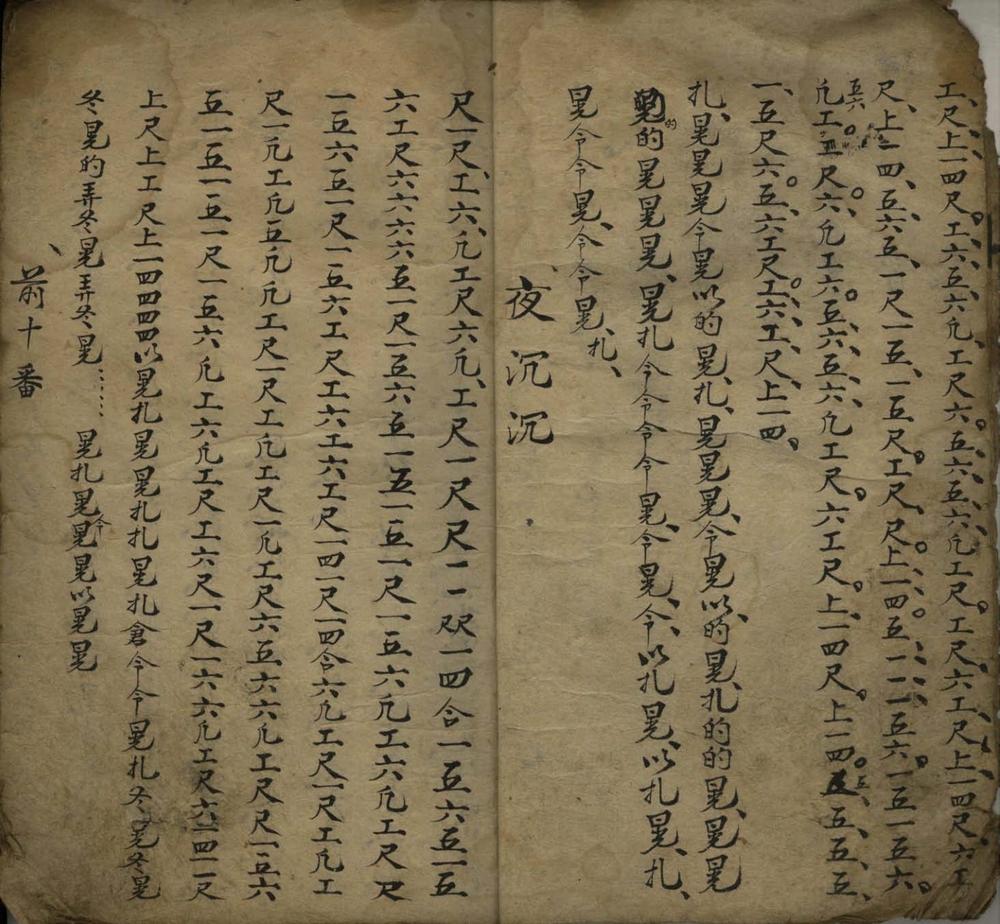 工、尺上一四尺。工、六五、六凡、工尺六。五六五、六凡工尺。工尺、六工、尺上一四尺、六工
尺、上一四、五六五、一尺一五、一五尺。工尺、尺上一四五一一一五六。一五一五六。
凡工五尺六。凡工六五六五、六凡工尺。六工尺。上一四尺。上一四五五、五、
五六
一、五尺六。五、六工尺。工六工、尺上一四。
扎、晃晃晃令晃以的晃、扎、晃晃晃、令晃以、的晃、扎的的晃、晃晃
的晃晃晃、晃扎令令令令晃、令晃、令、以扎晃、以扎晃、扎、
晃令令晃、令令晃、扎、
夜沉沉
尺一尺、工六、凡工尺六凡、工尺一尺尺一一尺尺一四合一五六五一五
六工尺六六六六五一尺一五六五一五一五一尺一五六凡工六凡工尺尺
一五六五一尺一五六工尺工六工六工尺一四一尺一四合六凡工尺一尺工凡工
尺一凡工凡五凡凡工尺一尺工凡工尺一凡工尺六五六六凡工尺尺一五六
五一五一五一尺一五六凡工六凡工尺工六尺一尺一六六凡工尺六一四一尺
上尺上工尺上一四四四以晃扎晃晃扎扎晃扎倉令令晃扎冬晃冬晃
冬晃的弄冬晃弄冬晃、、、、晃扎晃晃令晃以晃晃
前十番